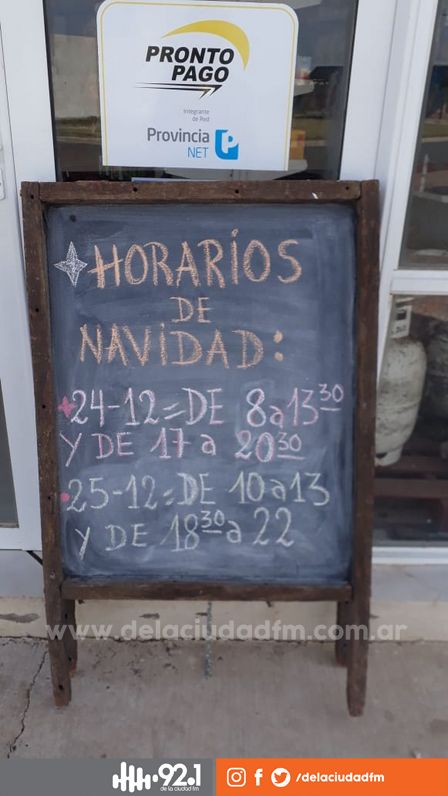 PRONTO
PAGO
Integrante
de Red
Provincia
NET
HORARIOS
DE
NAVIDAD:
24-12=DE 8a13³⁰
Y DE 17 a 20³⁰
25-12=DE 10a13
Y DE 18³⁰a 22
www.delaciudadfm.com.ar
92.1
de la ciudad fm
/delaciudadfm